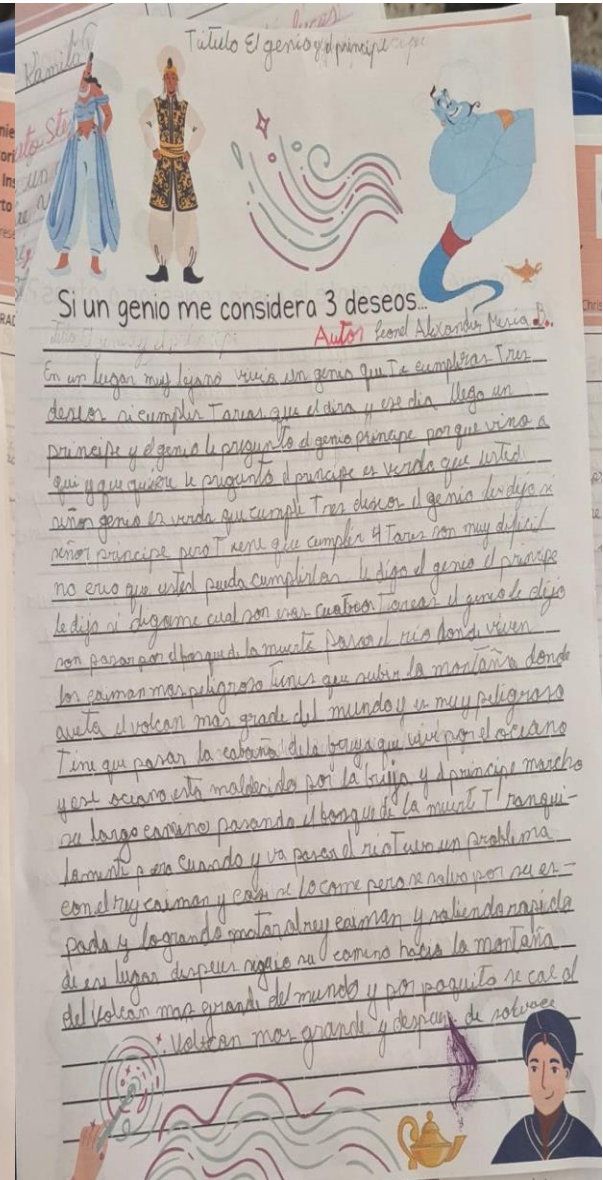 Título El genio y el principe
Kamila
Si un genio me considera 3 deseos...
Autor Leonel Alexander Mesia B.
En un lugar muy lejano vivia un genio que Te cumpliran Tres
deseos si cumplis Tareas que el dira y ese dia llego un
principe y el genio le pregunto el genio principe porque vino a
qui y que quiere le pregunto el principe es verda que usted
señor genio es verda que cumple Tres deseos el genio le dijo si
señor principe pero Tiene que cumplir 4 Tares son muy dificil
no creo que usted pueda cumplirlas le digo el genio el principe
le dijo si digame cual son esas cuatros Tareas el genio le dijo
son pasar por el bosque de la muerte pasar el rio donde viven
los caiman mas peligroso Tienes que subir la montaña donde
aveta el volcan mas grade del mundo y es muy peligroso
Tine que pasar la cabaña de la bruja que vive por el oceano
y ese oceano esta maldecido por la bruja y el principe marcho
su largo camino pasando el bosque de la muerte Tranqui-
lamente pero cuando y va pasar el rio Tuvo un problema
con el rey caiman y casi se lo come pero se salvo por su es-
pada y logrando matar al rey caiman y saliendo rapido
de ese lugar despues siguio su camino hacia la montaña
del volcan mas grande del mundo y por poquito se cae al
volcan mas grande y despues de